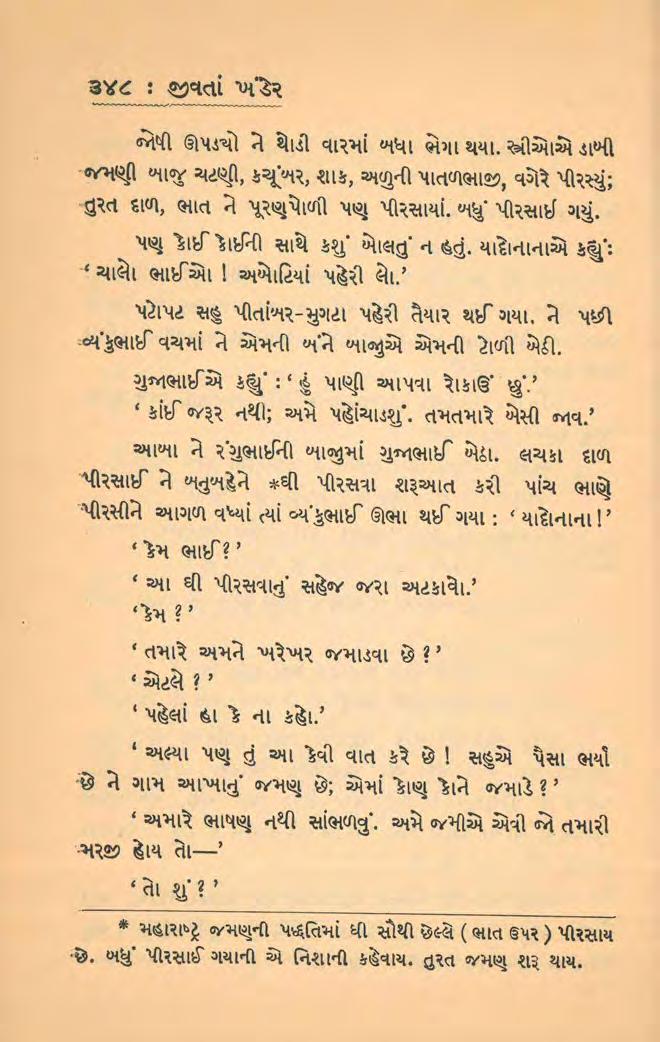 ૩૪૮ : જીવતાં ખંડેર
જોષી ઊપડ્યો ને થોડી વારમાં બધા ભેગા થયા. સ્ત્રીઓએ ડાબી
જમણી બાજુ ચટણી, કચૂંબર, શાક, અળુની પાતળભાજી, વગેરે પીરસ્યું;
તુરત દાળ, ભાત ને પૂરણપોળી પણ પીરસાયાં. બધું પીરસાઈ ગયું.
પણ કોઈ કોઈની સાથે કશું બોલતું ન હતું. યાદોનાનાએ કહ્યું:
‘ ચાલો ભાઈઓ ! અબોટિયાં પહેરી લો.’
પટોપટ સહુ પીતાંબર-મુગટા પહેરી તૈયાર થઈ ગયા. ને પછી
વ્યંકુભાઈ વચમાં ને એમની બંને બાજુએ એમની ટોળી બેઠી.
ગુજાભાઈએ કહ્યું : ‘ હું પાણી આપવા રોકાઉં છું.’
‘ કાંઈ જરૂર નથી; અમે પહોંચાડશું. તમતમારે બેસી જાવ.’
આબા ને રંગુભાઈની બાજુમાં ગુજાભાઈ બેઠા. લચકા દાળ
પીરસાઈ ને બનુબહેને *ઘી પીરસવા શરૂઆત કરી પાંચ ભાણે
પીરસીને આગળ વધ્યાં ત્યાં વ્યંકુભાઈ ઊભા થઈ ગયા : ‘ યાદોનાના !’
‘ કેમ ભાઈ? ’
‘ આ ઘી પીરસવાનું સહેજ જરા અટકાવો.’
‘કેમ ? ’
‘ તમારે અમને ખરેખર જમાડવા છે ? ’
‘ એટલે ? ’
‘ પહેલાં હા કે ના કહો.’
‘ અલ્યા પણ તું આ કેવી વાત કરે છે ! સહુએ પૈસા ભર્યા
છે ને ગામ આખાનું જમણ છે; એમાં કોણ કોને જમાડે ? ’
‘ અમારે ભાષણ નથી સાંભળવું. અમે જમીએ એવી જો તમારી
મરજી હોય તો—’
‘ તો શું ? ’
* મહારાષ્ટ્ર જમણની પદ્ધતિમાં ઘી સૌથી છેલ્લે ( ભાત ઉપર ) પીરસાય
છે. બધું પીરસાઈ ગયાની એ નિશાની કહેવાય. તુરત જમણ શરૂ થાય.